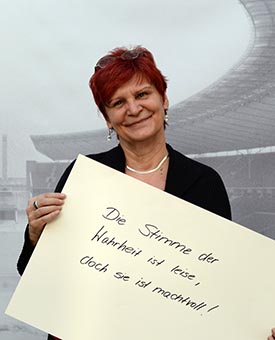 Die Stimme der
Wahrheit ist leise,
doch sie ist machtvoll!